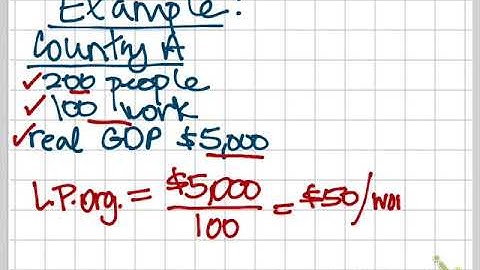 Example:
Country A
✓200 people
✓100 work
✓real GDP $5,000
L.P.org. = $5,000 / 100 = $50/wor